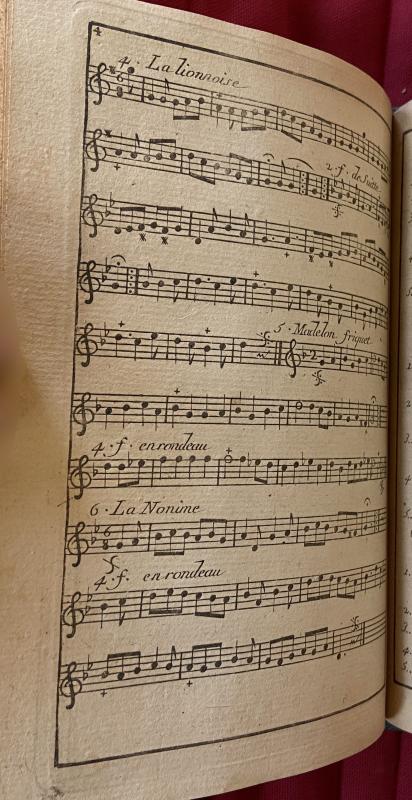 4
4. La lionnoise
2. f. de Suitte
5. Madelon friquet
2
4. f. en rondeau
6. La Nonime
6
8
4. f. en rondeau